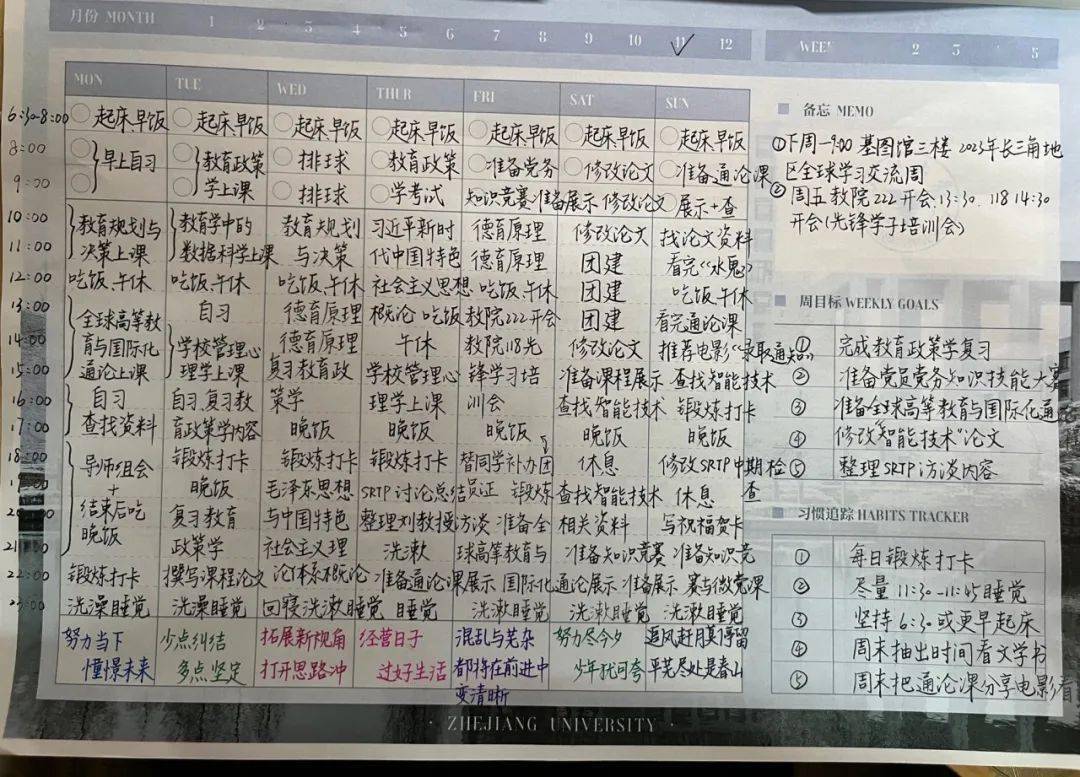 月份 MONTH 1 2 3 4 5 6 7 8 9 10 11 12
WEE 2 3 5
MON TUE WED THUR FRI SAT SUN
6:30-8:00 起床、早饭 起床、早饭 起床、早饭 起床、早饭 起床、早饭 起床、早饭 起床、早饭
8:00 早上自习 教育政策 排球 教育政策 准备党务 修改论文 准备通论课
9:00 学上课 排球 学考试 知识竞赛 准备展示 修改论文 展示+查
10:00 教育规划与 教育学中的 教育规划 习近平新时 德育原理 修改论文 找论文资料
11:00 决策上课 数据科学上课 与决策 代中国特色 德育原理 团建 看完《水鬼》
12:00 吃饭、午休 吃饭、午休 吃饭、午休 社会主义思想 吃饭、午休 团建 吃饭、午休
13:00 全球高等教 自习 德育原理 概论 吃饭 教院222开会 团建 看完通论课
14:00 育与国际化 学校管理心 德育原理 午休 教院118先 修改论文 推荐电影《录取通知》
15:00 通论上课 理学上课 复习教育政 学校管理心 锋学习培 准备课程展示 查找智能技术
16:00 自习 自习、复习教 策学 理学上课 训会 查找智能技术 锻炼打卡
17:00 查找资料 育政策学内容 晚饭 晚饭 晚饭 晚饭 晚饭
18:00 导师组会 锻炼打卡 锻炼打卡 锻炼打卡 替同学补办团 休息 修改SRTP中期检
+ 晚饭 毛泽东思想 SRTP讨论总结 员证 锻炼 查找智能技术 休息 查
结束后吃 复习教育 与中国特色 整理刘教授访谈 准备全 相关资料 写祝福贺卡
21:00 晚饭 政策学 社会主义理 洗漱 球高等教育与 准备知识竞赛 准备知识竞
22:00 锻炼打卡 撰写课程论文 论体系概论 准备通论课展示 国际化通论展示 准备展示 赛与微党课
23:00 洗澡睡觉 洗澡睡觉 回寝洗漱睡觉 睡觉 洗漱睡觉 洗漱睡觉 洗漱睡觉
努力当下 少点纠结 拓展新视角 经营日子 混乱与芜杂 努力尽今夕 追风赶月莫停留
憧憬未来 多点坚定 打开思路冲 过好生活 都将在前进中 少年犹可夸 平芜尽处是春山
变清晰
备忘 MEMO
①下周一9:00 基图馆三楼 2023年长三角地
区全球学习交流周
② 周五教院222开会13:30、118 14:30
开会(先锋学子培训会)
周目标 WEEKLY GOALS
① 完成教育政策学复习
② 准备党员党务知识技能大赛
③ 准备全球高等教育与国际化通论
④ 修改“智能技术”论文
⑤ 整理SRTP访谈内容
习惯追踪 HABITS TRACKER
① 每日锻炼打卡
② 尽量11:30-11:45睡觉
③ 坚持6:30或更早起床
④ 周末抽出时间看文学书
⑤ 周末把通论课分享电影看
· ZHEJIANG UNIVERSITY ·